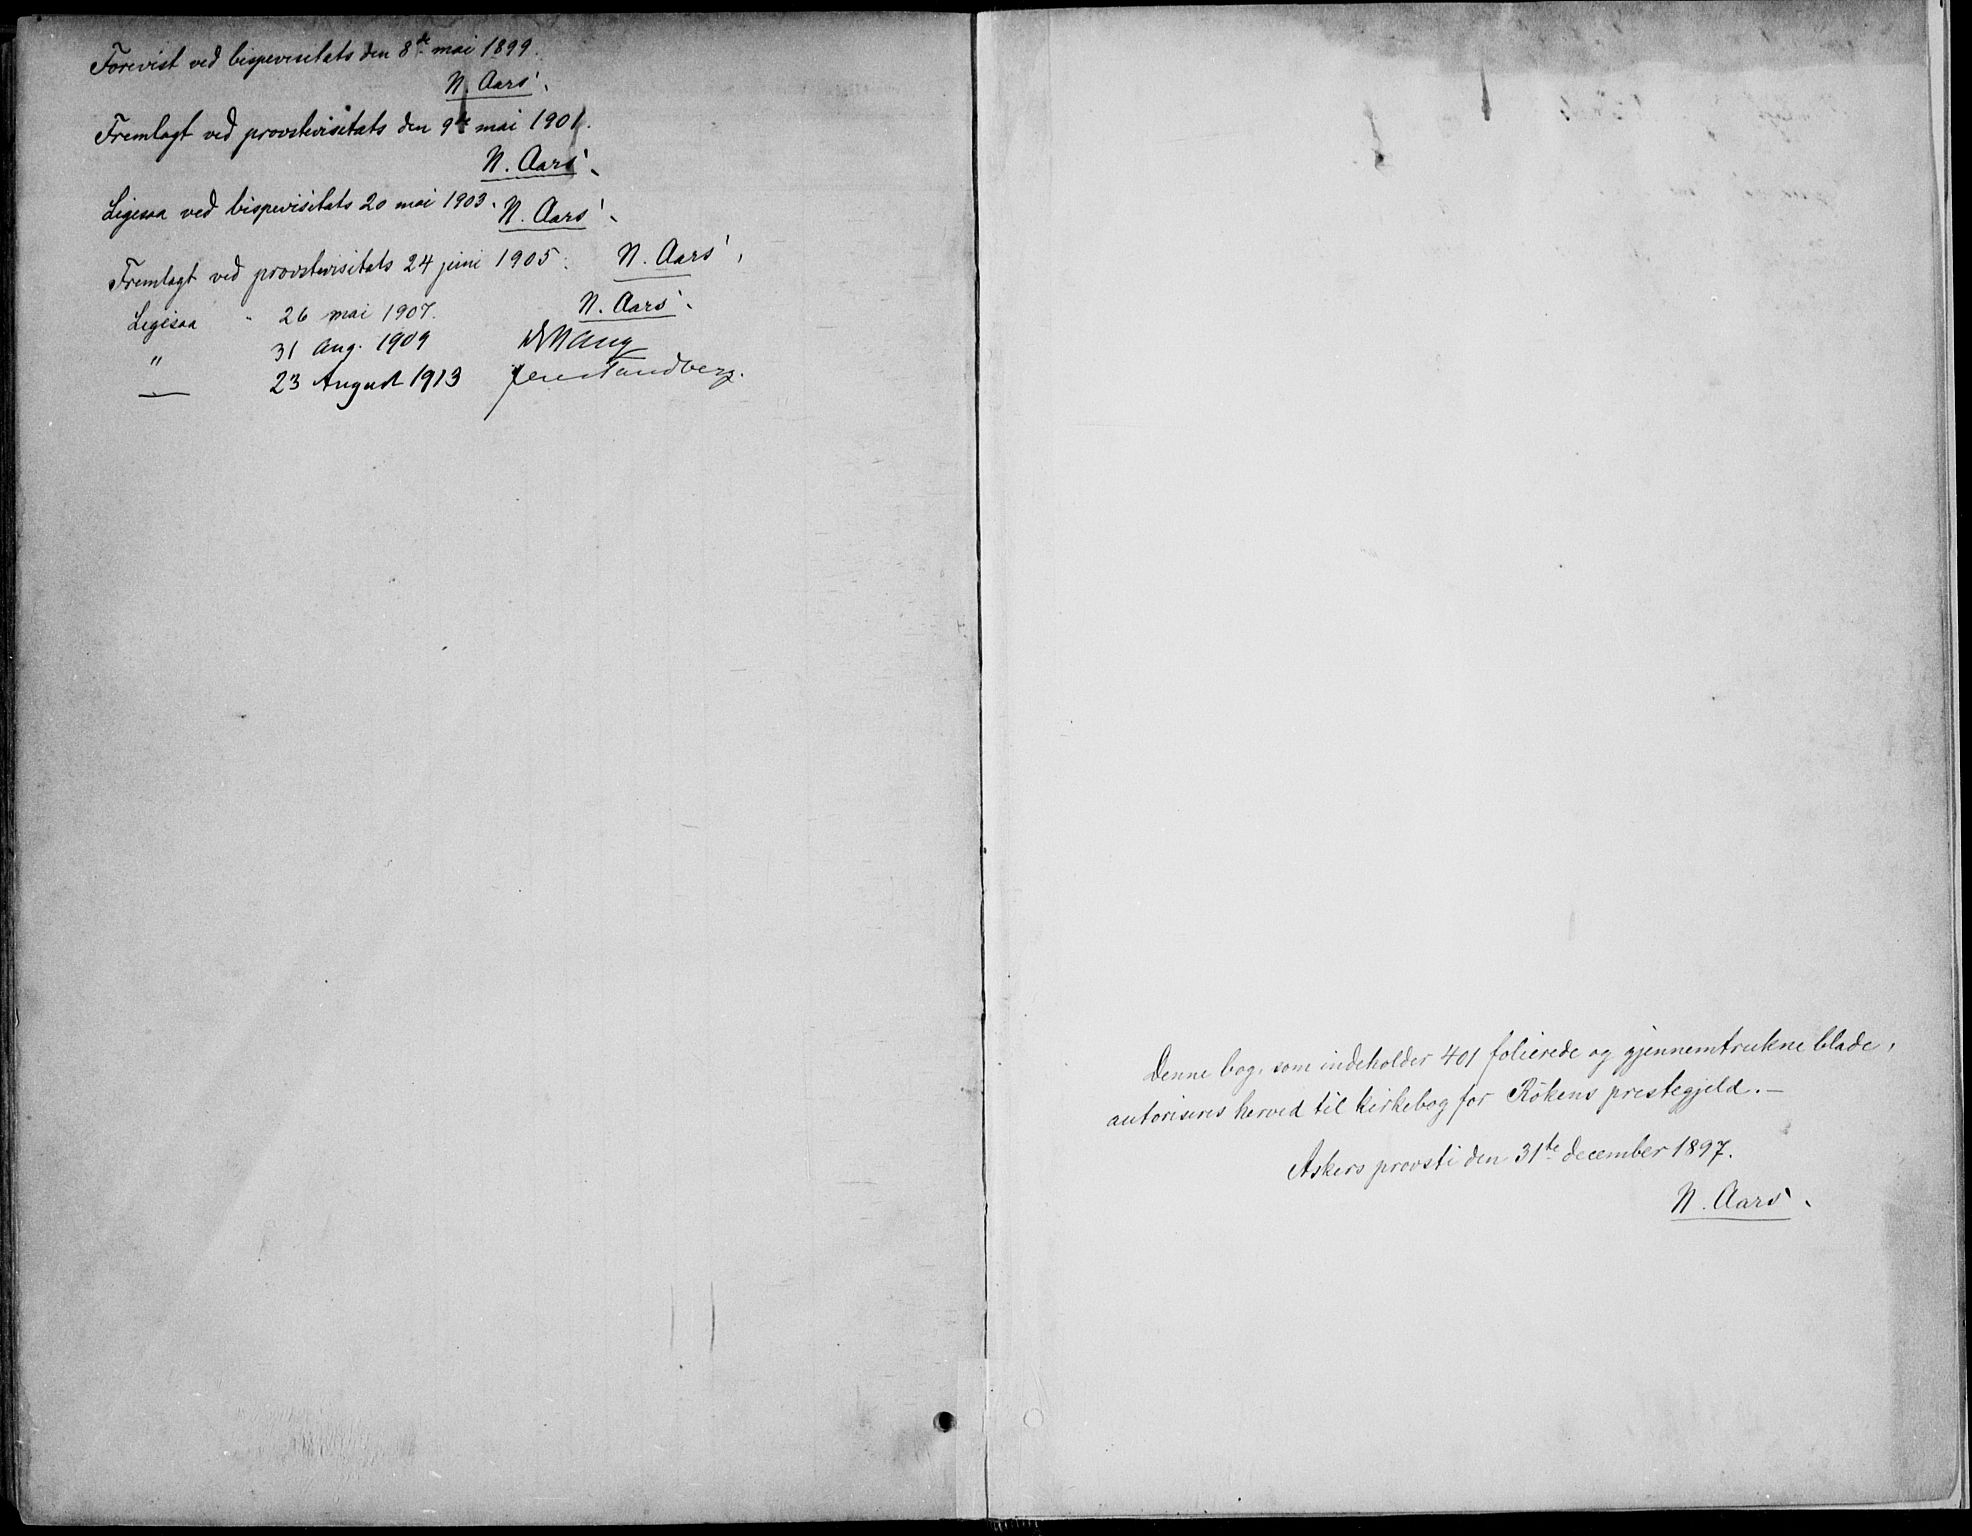 Forevist ved bispevisitats den 8de mai 1899.
N. Aars.
Fremlagt ved provstevisitats den 9de mai 1901.
N. Aars.
Ligesaa ved bispevisitats 20 mai 1903. N. Aars.
Fremlagt ved provstevisitats 24 juni 1905. N. Aars.
Ligesaa " 26 mai 1907. N. Aars.
" 31 Aug. 1909
—"— 23 August 1913 Jens Tandberg.
Denne bog, som indeholder 401 folierede og gjennemtrukne blade,
autoriseres herved til kirkebog for Rökens prestegjeld.—
Askers provsti den 31te december 1897.
N. Aars.